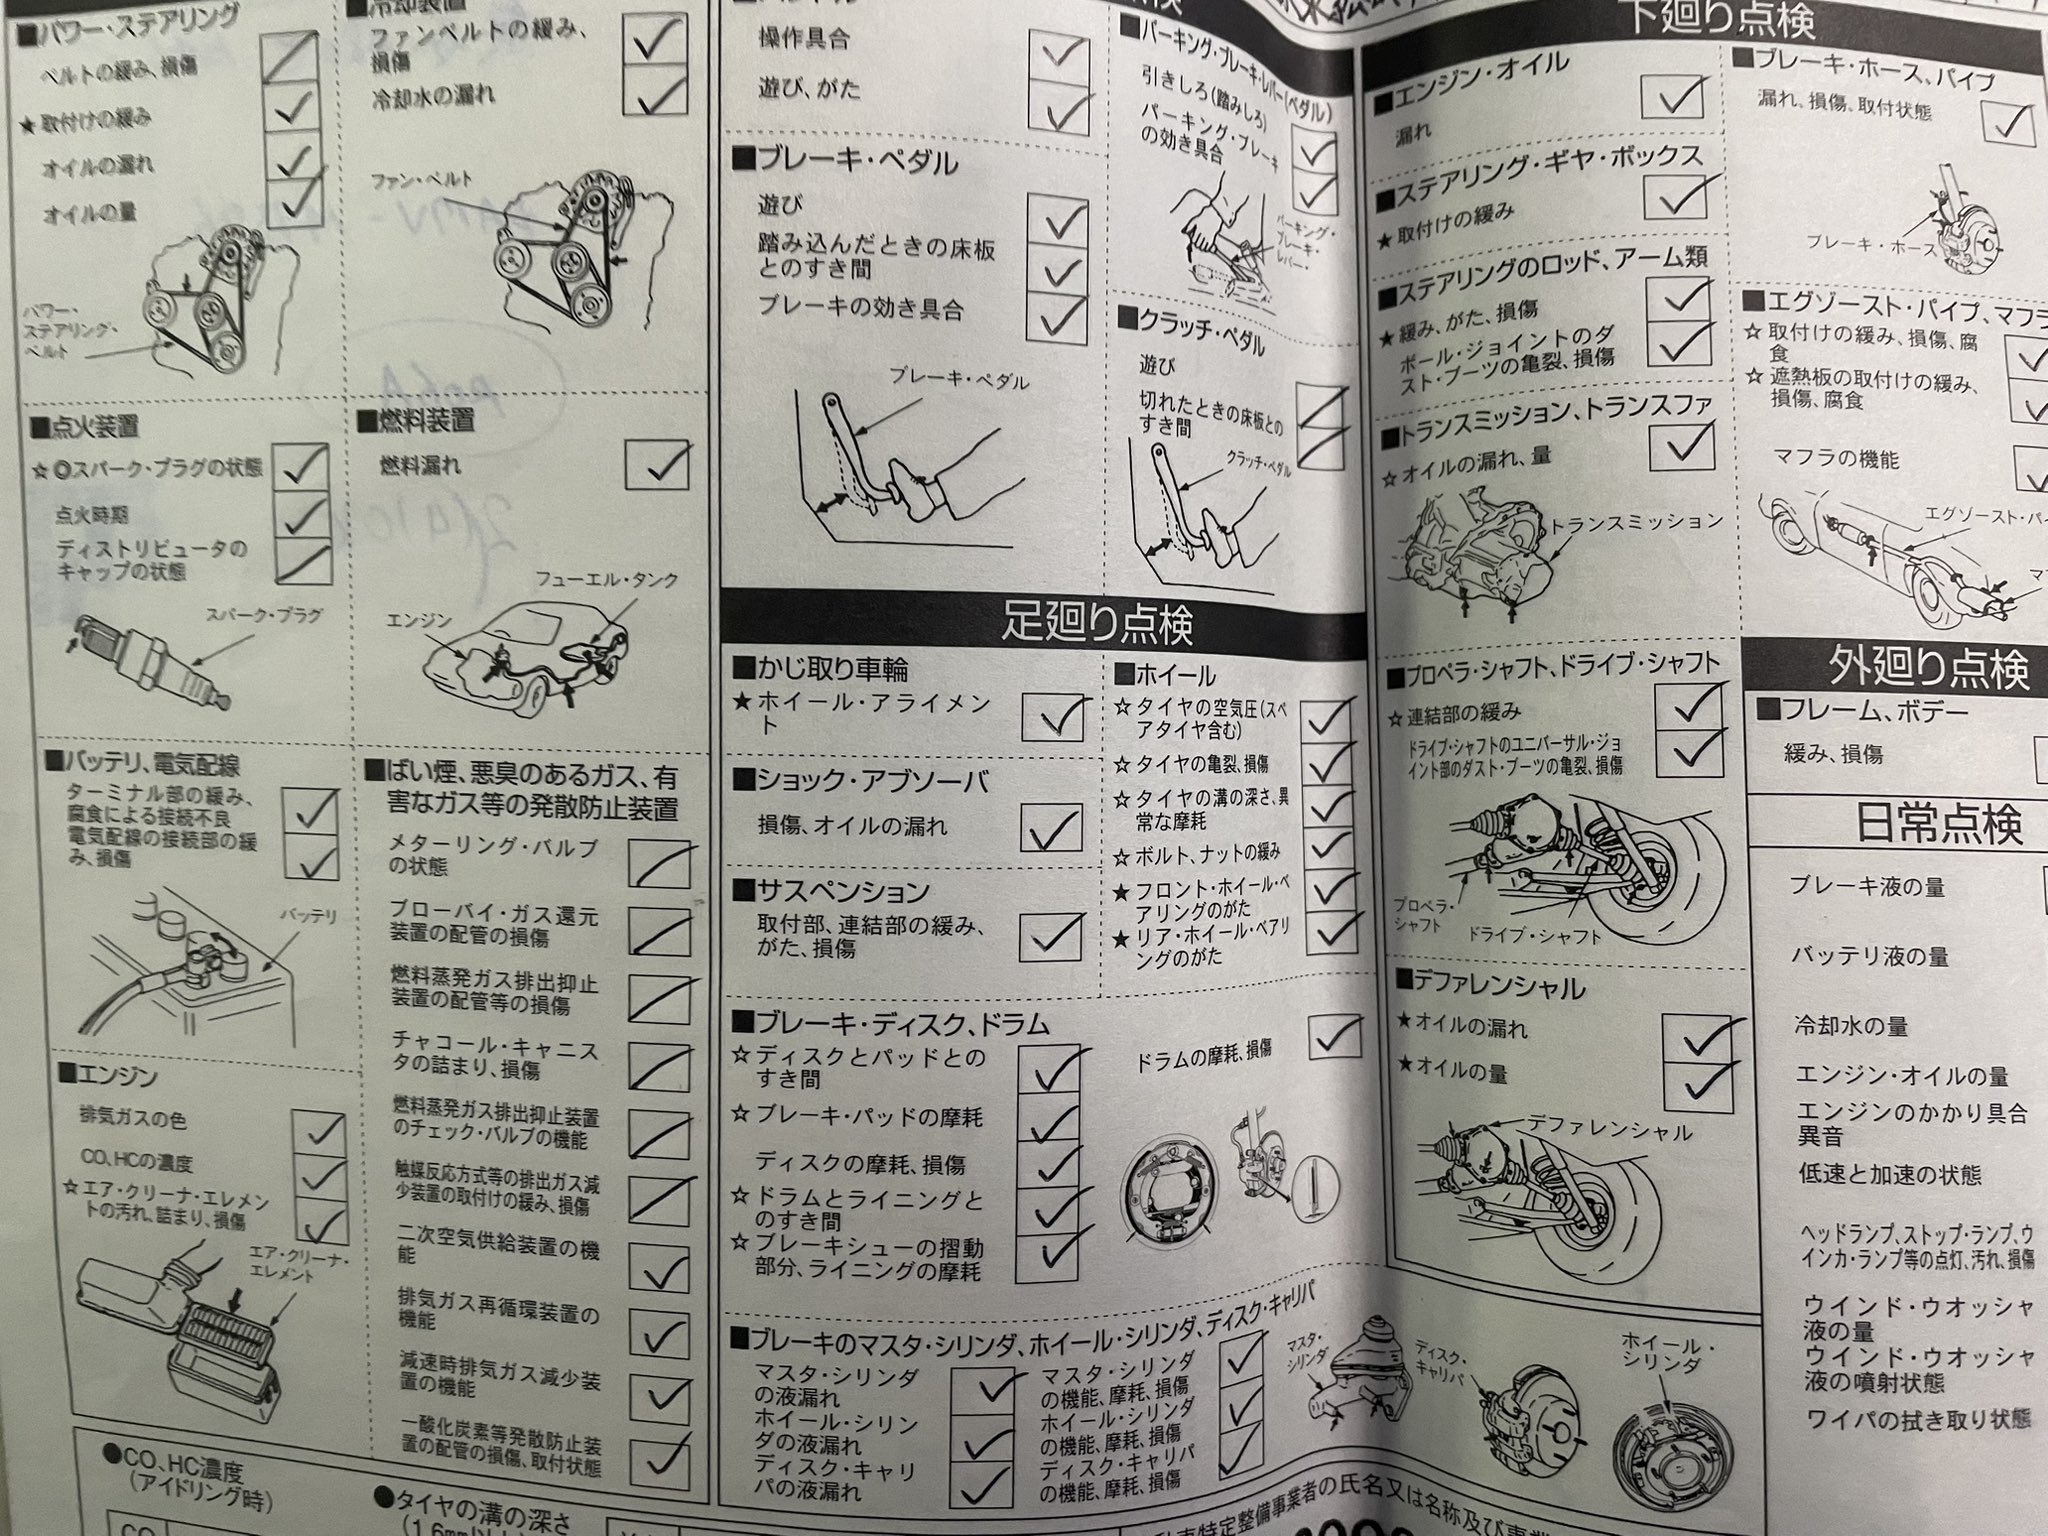 ■パワー・ステアリング
ベルトの緩み、損傷
★取付けの緩み
オイルの漏れ
オイルの量
パワー・
ステアリング・
ベルト
冷却装置
ファンベルトの緩み、
損傷
冷却水の漏れ
ファン・ベルト
■点火装置
☆◎スパーク・プラグの状態
点火時期
ディストリビュータの
キャップの状態
スパーク・プラグ
■燃料装置
燃料漏れ
フューエル・タンク
エンジン
■バッテリ、電気配線
ターミナル部の緩み、
腐食による接続不良
電気配線の接続部の緩
み、損傷
バッテリ
■エンジン
排気ガスの色
CO、HCの濃度
☆エア・クリーナ・エレメン
トの汚れ、詰まり、損傷
エア・クリーナ・
エレメント
■ばい煙、悪臭のあるガス、有
害なガス等の発散防止装置
メターリング・バルブ
の状態
ブローバイ・ガス還元
装置の配管の損傷
燃料蒸発ガス排出抑止
装置の配管等の損傷
チャコール・キャニス
タの詰まり、損傷
燃料蒸発ガス排出抑止装置
のチェック・バルブの機能
触媒反応方式等の排出ガス減
少装置の取付けの緩み、損傷
二次空気供給装置の機
能
排気ガス再循環装置の
機能
減速時排気ガス減少装
置の機能
一酸化炭素等発散防止装
置の配管の損傷、取付状態
●CO、HC濃度
(アイドリング時)
CO
●タイヤの溝の深さ
操作具合
遊び、がた
■ブレーキ・ペダル
遊び
踏み込んだときの床板
とのすき間
ブレーキの効き具合
ブレーキ・ペダル
■パーキング・ブレーキ・レバー(ペダル)
引きしろ(踏みしろ)
パーキング・ブレーキ
の効き具合
パーキング・
ブレーキ・
レバー・
■クラッチ・ペダル
遊び
切れたときの床板との
すき間
クラッチ・ペダル
足廻り点検
■かじ取り車輪
★ホイール・アライメン
ト
■ショック・アブソーバ
損傷、オイルの漏れ
■サスペンション
取付部、連結部の緩み、
がた、損傷
■ホイール
☆タイヤの空気圧(スペ
アタイヤ含む)
☆タイヤの亀裂、損傷
☆タイヤの溝の深さ、異
常な摩耗
☆ボルト、ナットの緩み
★フロント・ホイール・ベ
アリングのがた
★リア・ホイール・ベアリ
ングのがた
■ブレーキ・ディスク、ドラム
☆ディスクとパッドとの
すき間
☆ブレーキ・パッドの摩耗
ディスクの摩耗、損傷
☆ドラムとライニングと
のすき間
☆ブレーキシューの摺動
部分、ライニングの摩耗
ドラムの摩耗、損傷
■ブレーキのマスタ・シリンダ、ホイール・シリンダ、ディスク・キャリパ
マスタ・シリンダ
の液漏れ
ホイール・シリン
ダの液漏れ
ディスク・キャリ
パの液漏れ
マスタ・シリンダ
の機能、摩耗、損傷
ホイール・シリンダ
の機能、摩耗、損傷
ディスク・キャリパ
の機能、摩耗、損傷
マスタ・
シリンダ
ディスク・
キャリパ
ホイール・
シリンダ
特定整備事業者の氏名又は名称及び事業
下廻り点検
■エンジン・オイル
漏れ
■ステアリング・ギヤ・ボックス
★取付けの緩み
■ステアリングのロッド、アーム類
★緩み、がた、損傷
ボール・ジョイントのダ
スト・ブーツの亀裂、損傷
■トランスミッション、トランスファ
☆オイルの漏れ、量
トランスミッション
■プロペラ・シャフト、ドライブ・シャフト
☆連結部の緩み
ドライブ・シャフトのユニバーサル・ジョ
イント部のダスト・ブーツの亀裂、損傷
プロペラ・
シャフト
ドライブ・シャフト
■デファレンシャル
★オイルの漏れ
★オイルの量
デファレンシャル
■ブレーキ・ホース、パイプ
漏れ、損傷、取付状態
ブレーキ・ホース
■エグゾースト・パイプ、マフラ
☆取付けの緩み、損傷、腐
食
☆遮熱板の取付けの緩み、
損傷、腐食
マフラの機能
エグゾースト・パイ
マ
外廻り点検
■フレーム、ボデー
緩み、損傷
日常点検
ブレーキ液の量
バッテリ液の量
冷却水の量
エンジン・オイルの量
エンジンのかかり具合
異音
低速と加速の状態
ヘッドランプ、ストップ・ランプ、ウ
インカ・ランプ等の点灯、汚れ、損傷
ウインド・ウオッシャ
液の量
ウインド・ウオッシャ
液の噴射状態
ワイパの拭き取り状態